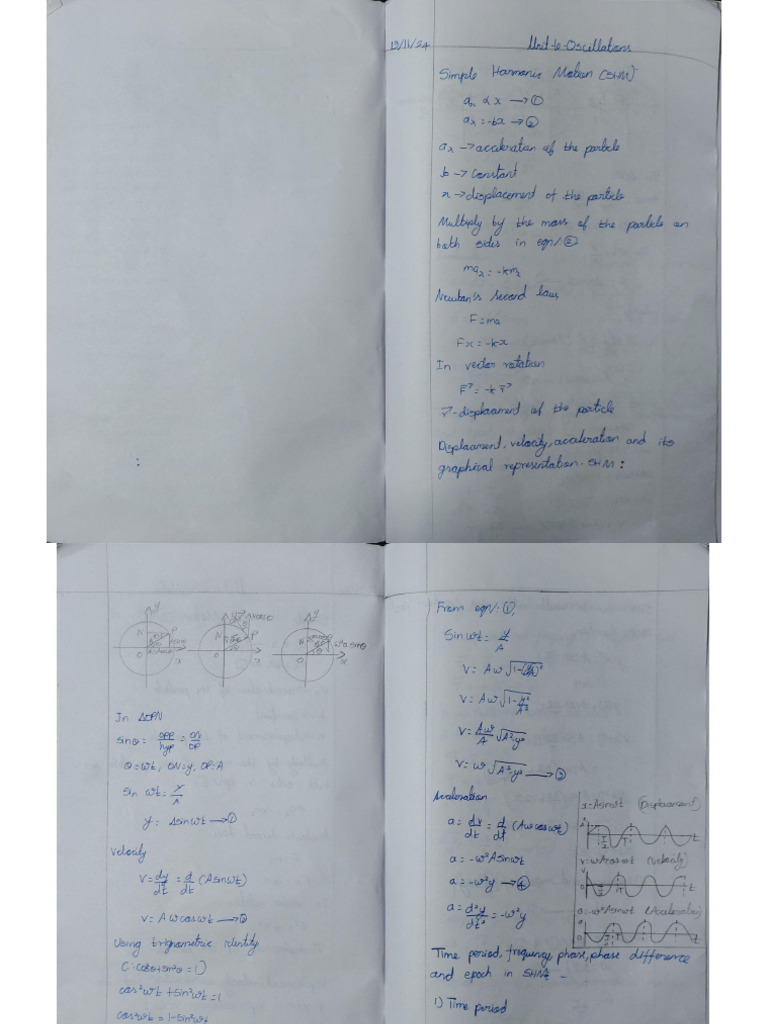 19/11/24
Unit-6-Oscillations
Simple Harmonic Motion (SHM)
aₓ α x → ①
aₓ = -bx → ②
aₓ → acceleration of the particle
b → constant
x → displacement of the particle
Multiply by the mass of the particle on
both sides in eqn/. ②
maₓ = -kmₓ
Newton's second law,
F = ma
Fx = -kx
In vector notation
F⃗ = -k r⃗
r⃗ - displacement of the particle
Displacement, velocity, acceleration and its
graphical representation - SHM :
In ΔOPN
sinθ = opp/hyp = ON/OP
θ = wt, ON = y, OP = A
Sin wt = y/A
y = Asinwt → ①
Velocity
V = dy/dt = d/dt (Asinwt)
V = Awcoswt → ②
Using trignametric identity
cos²wt + sin²wt = 1
cos²wt = 1 - sin²wt
From eqn/. ①,
Sinwt = y/A
V = Aw √1-(y/A)²
V = Aw √1-y²/A²
V = Aw/A √A²-y²
V = w √A²-y² → ③
Acceleration
a = dv/dt = d/dt (Awcoswt)
a = -w²Asinwt
a = -w²y → ④
a = d²y/dt² = -w²y
x = Asinwt (Displacement)
v = wAcoswt (Velocity)
a = -w²Asinwt (Acceleration)
Time period, frequency phase, phase difference
and epoch in SHM -
1) Time period